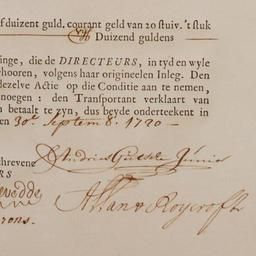 f duizent guld. courant geld van 20 stuiv. 't stuk
vyf Duizend guldens
inge, die de DIRECTEURS, in tyd en wyle
chooren, volgens haar origineelen Inleg. Den
dezelve Actie op die Conditie aan te nemen,
noegen: den Transportant verklaart van
n betaalt te zyn, dus beyde onderteekent in
en 30e Septem 8. 1720
chrevene
RS
Allan & Roycroft
rons.